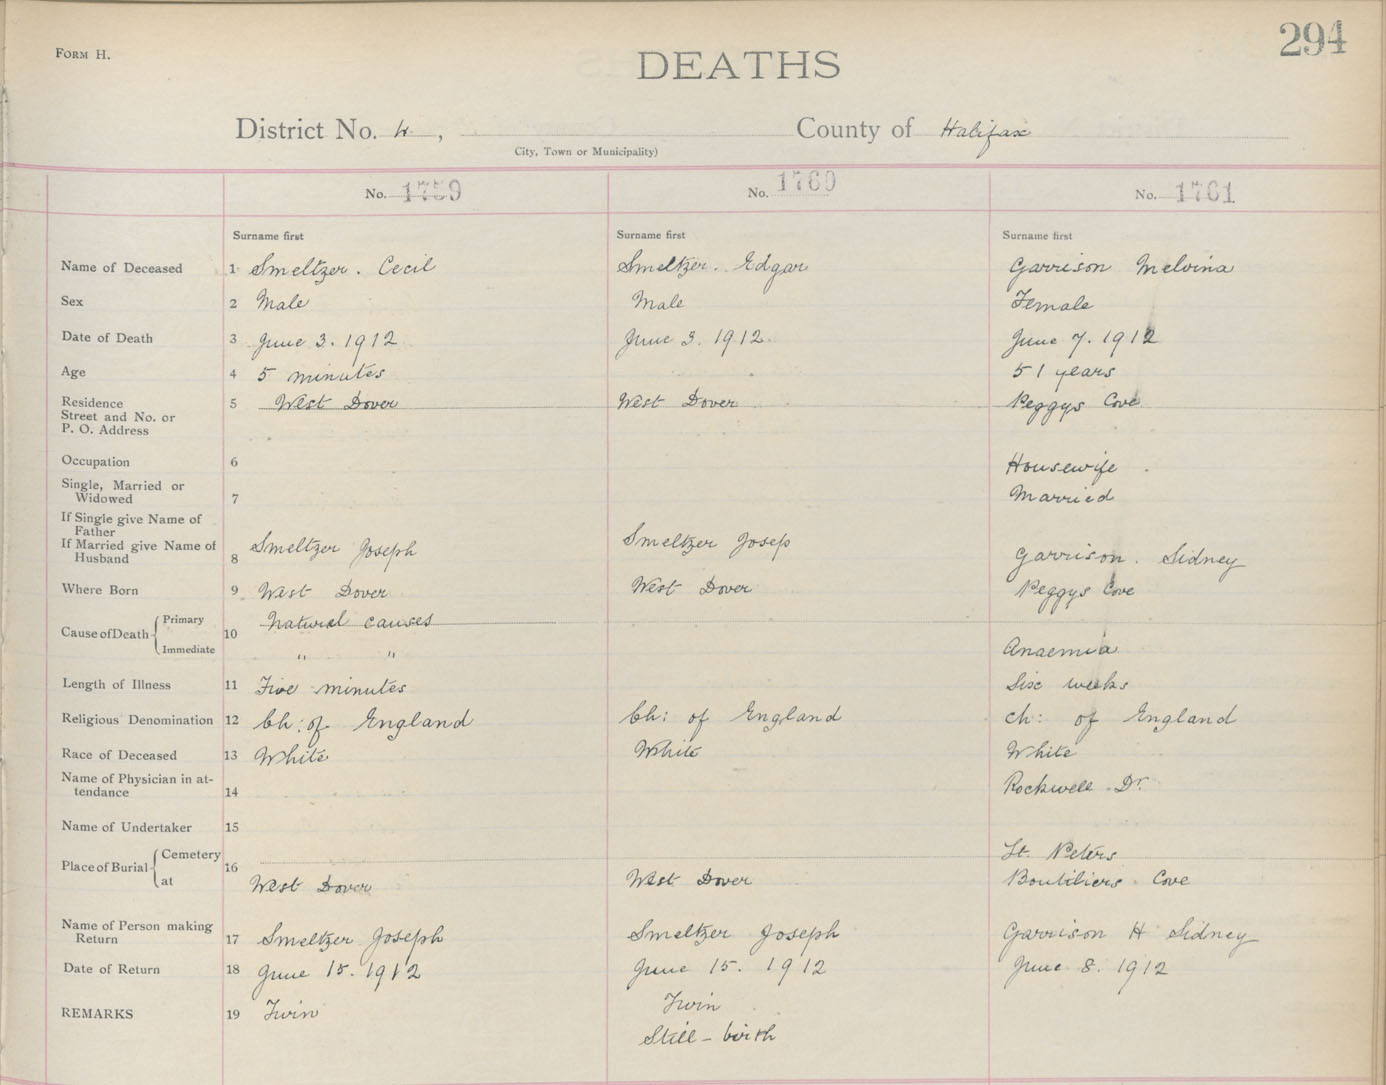 294
FORM H.
DEATHS
District No. 4, County of Halifax
City, Town or Municipality)
No. 1759 No. 1760 No. 1761
Surname first Surname first Surname first
Name of Deceased 1 Smeltzer. Cecil Smeltzer. Edgar Garrison Melvina
Sex 2 Male Male Female
Date of Death 3 June 3. 1912 June 3. 1912. June 7. 1912
Age 4 5 minutes 51 years
Residence 5 West Dover West Dover Peggys Cove
Street and No. or
P. O. Address
Occupation 6 Housewife
Single, Married or
Widowed 7 Married
If Single give Name of
Father
If Married give Name of
Husband 8 Smeltzer Joseph Smeltzer Josep Garrison. Sidney
Where Born 9 West Dover West Dover Peggys Cove
Cause of Death Primary 10 Natural causes
Immediate " " Anaemia
Length of Illness 11 Five minutes Six weeks
Religious Denomination 12 Ch: of England Ch: of England Ch: of England
Race of Deceased 13 White White White
Name of Physician in at-
tendance 14 Rockwell Dr.
Name of Undertaker 15
Place of Burial Cemetery 16 St. Peters
at West Dover West Dover Boutiliers Cove
Name of Person making
Return 17 Smeltzer Joseph Smeltzer Joseph Garrison H Sidney
Date of Return 18 June 15. 1912 June 15. 1912 June 8. 1912
REMARKS 19 Twin Twin
Still-birth